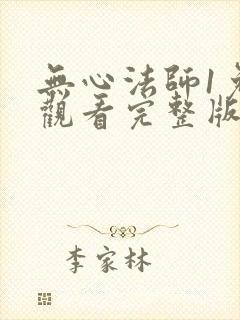 無心法師1免
觀看完整版
李家林